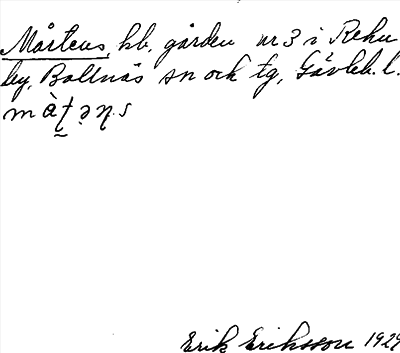 Mårtens, hb, gården nr 3 i Rehn
by, Bollnäs sn och tg, Gävleb. l.
Erik Eriksson 1929